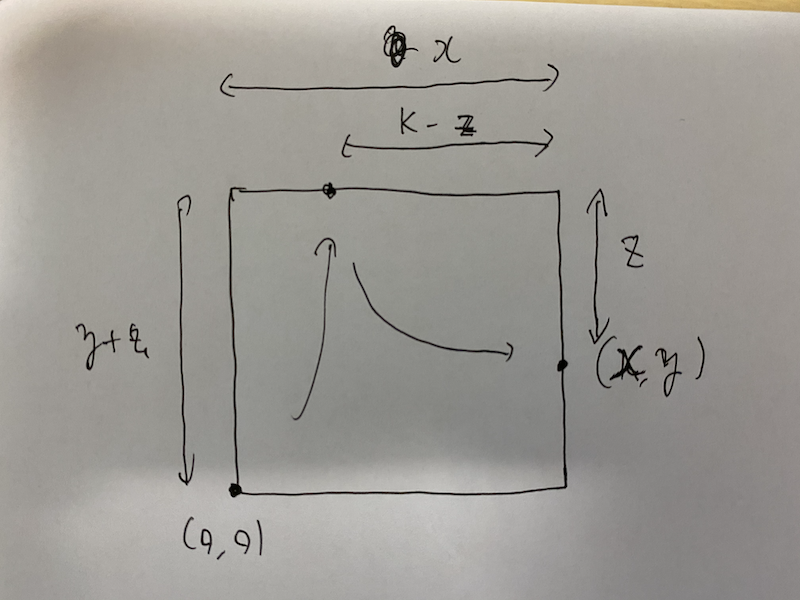 x
K - z
z
y+z
(x, y)
(0, 0)